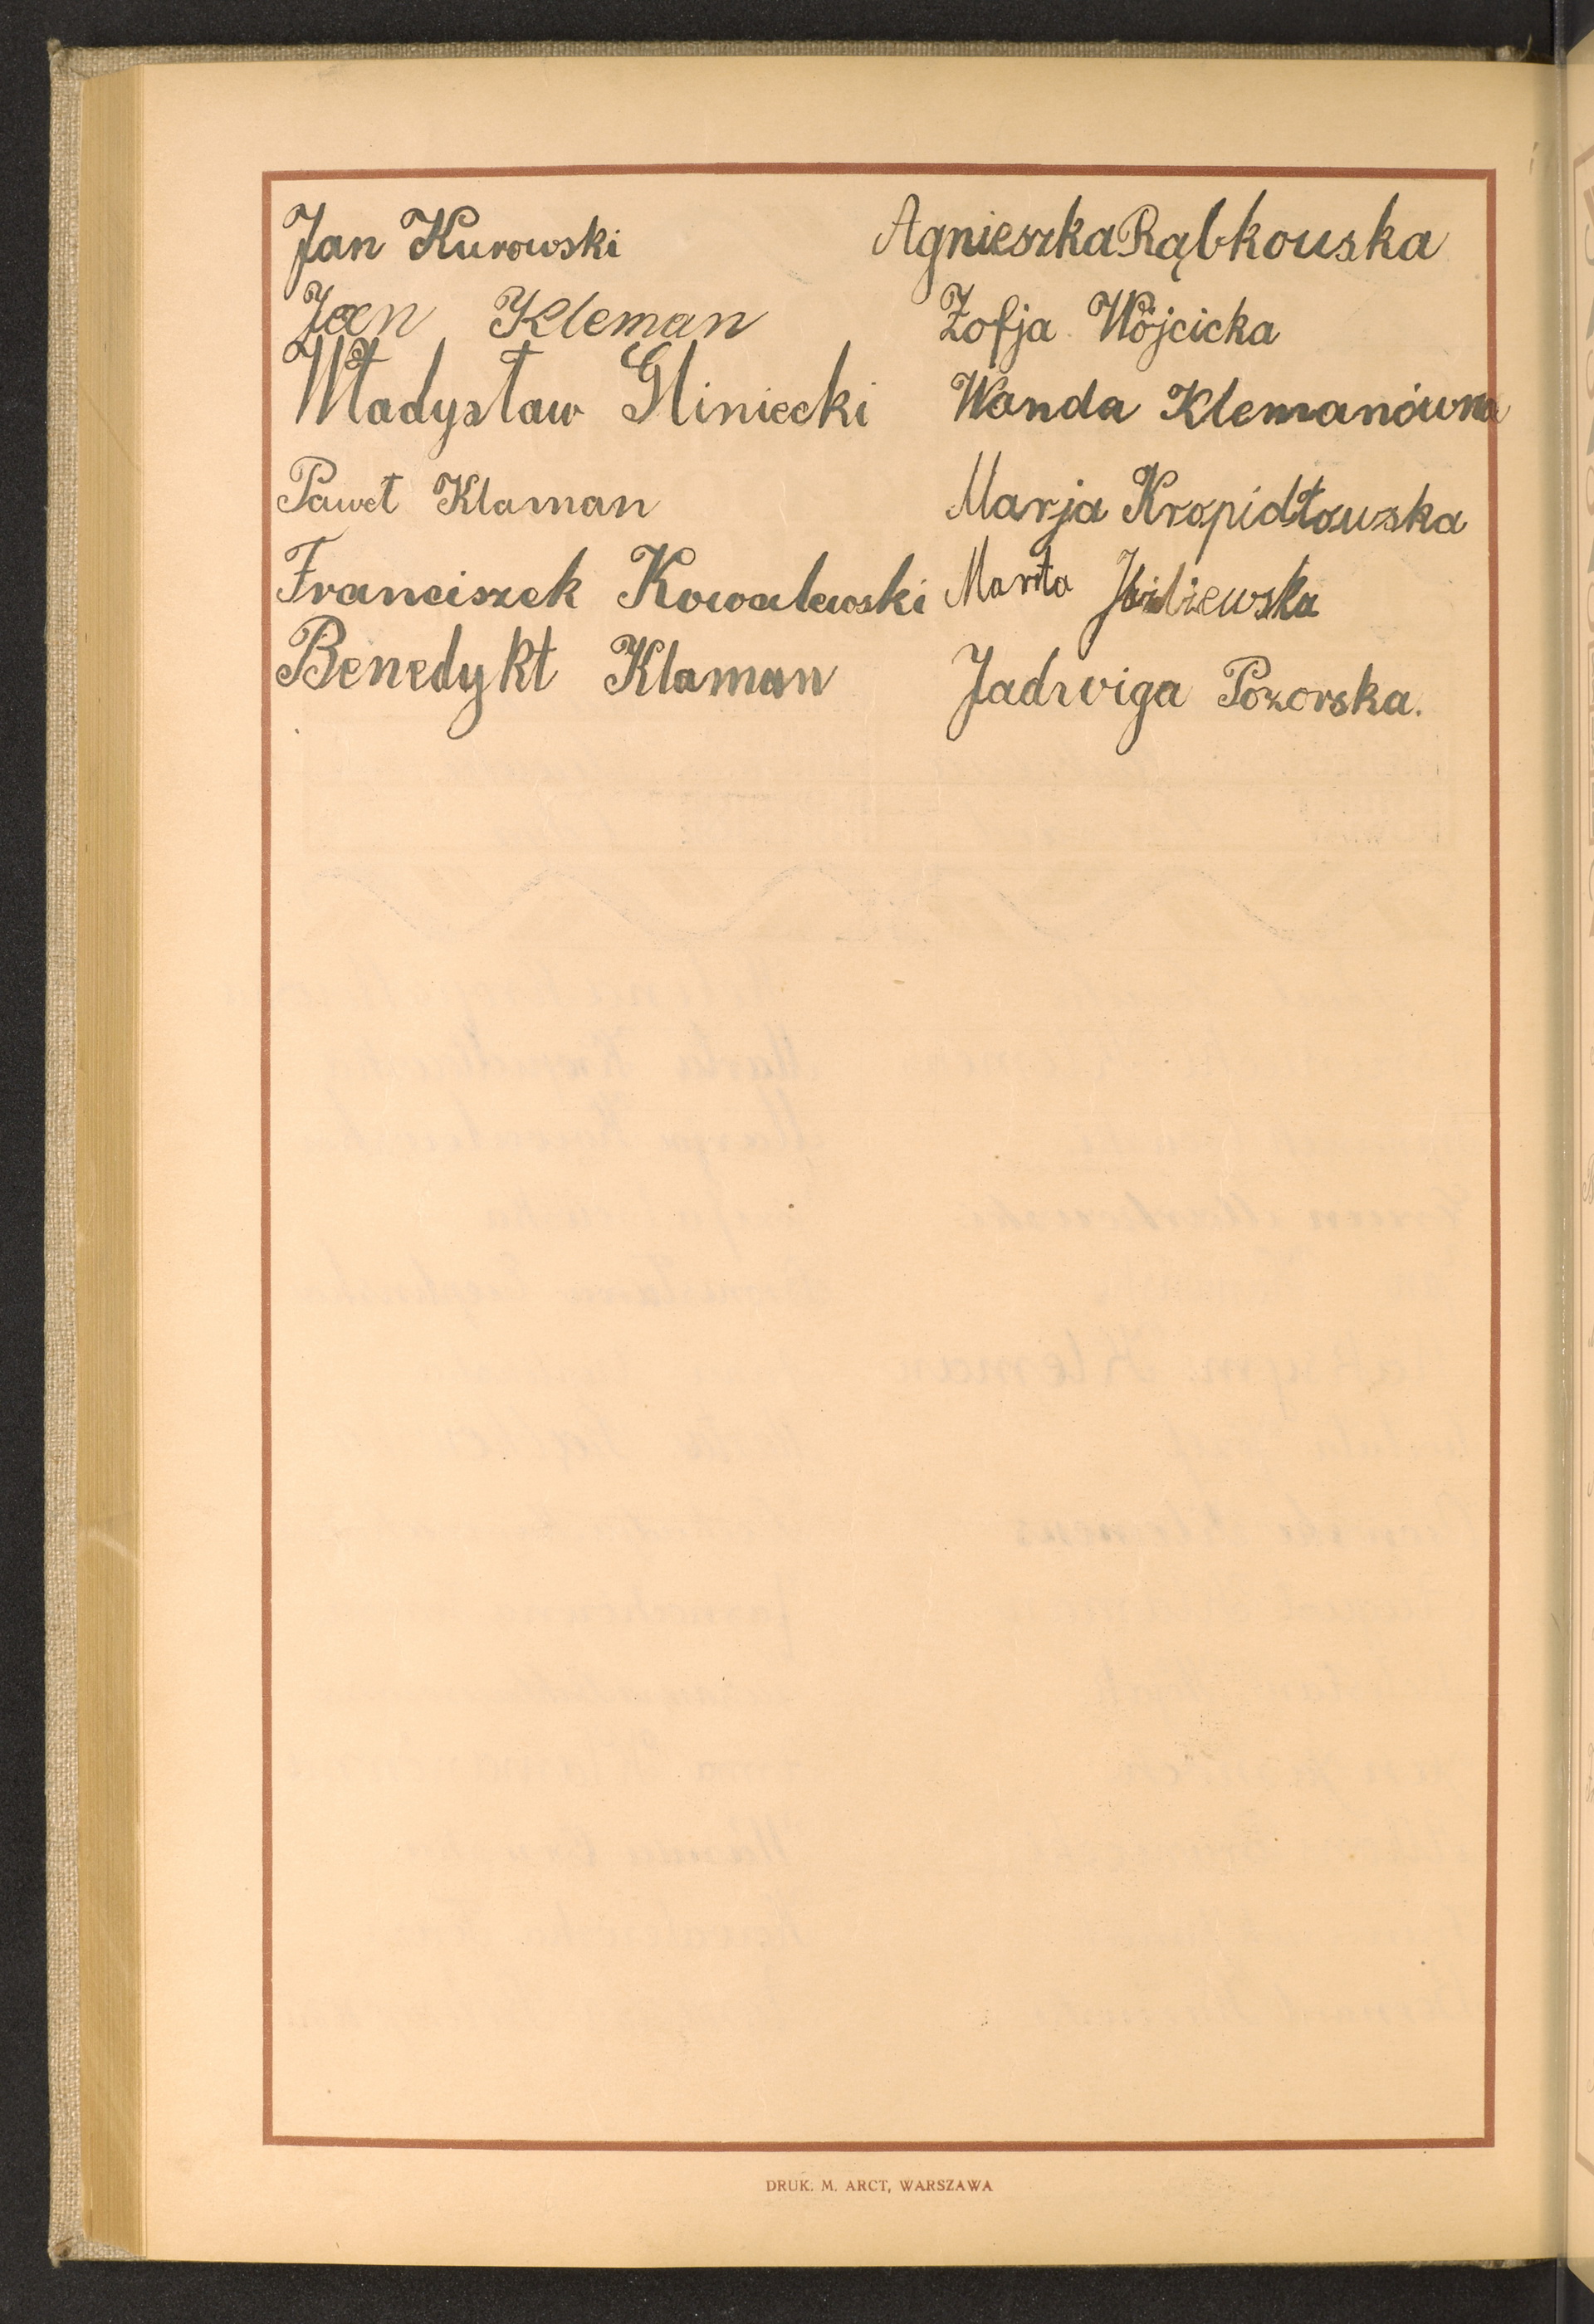 Jan Kurowski
Jan Kleman
Władysław Gliniecki
Paweł Klaman
Franciszek Kowalewski
Benedykt Klaman
Agnieszka Rąbkowska
Zofja Wójcicka
Wanda Klemanówna
Marja Kropidłowska
Marta
Jadwiga Pozorska.
DRUK. M. ARCT, WARSZAWA